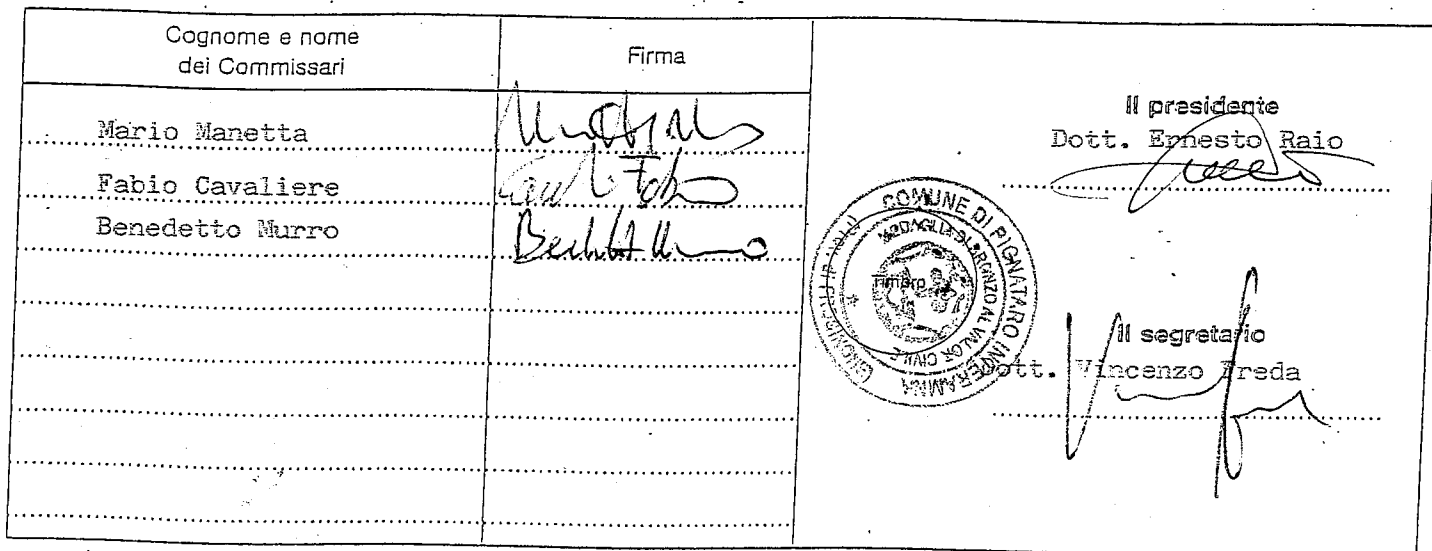 Cognome e nome
dei Commissari
Firma
Mario Manetta
Fabio Cavaliere
Benedetto Murro
Il presidente
Dott. Ernesto Raio
COMUNE DI PIGNATARO INTERAMNA
MEDAGLIA DI BRONZO AL VALOR CIVILE
Timbro
Il segretario
Dott. Vincenzo Freda